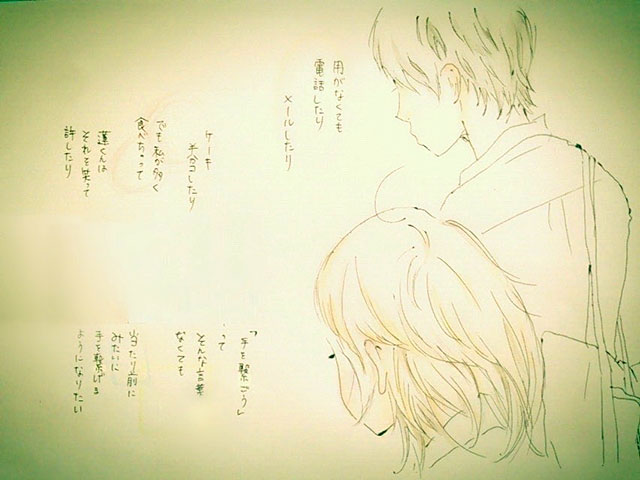 用がなくても
電話したり
メールしたり
ケーキ
半分コしたり
でも私が多く
食べちゃって
蓮くんは
それを笑って
許したり
「手を繋ごう」
って
そんな言葉
なくても
当たり前に
みたいに
手を繋げる
ようになりたい